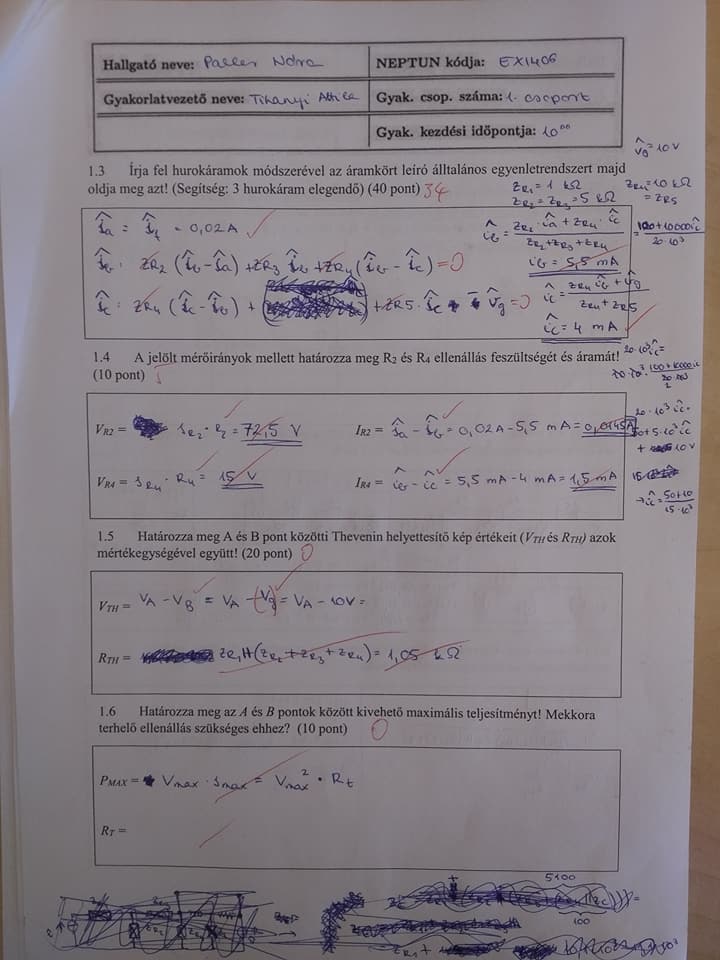 Hallgató neve: Paller Nóra
NEPTUN kódja: EX1406
Gyakorlatvezető neve: Tihanyi Attila
Gyak. csop. száma: 1. csoport
Gyak. kezdési időpontja: 10⁰⁰
V̂g = 10 V
1.3 Írja fel hurokáramok módszerével az áramkört leíró álltalános egyenletrendszert majd
oldja meg azt! (Segítség: 3 hurokáram elegendő) (40 pont) 34
ZR1 = 1 kΩ ZR4 = 10 kΩ
ZR2 = ZR3 = 5 kΩ = ZR5
îa = = 0,02A
îb: ZR2 (îb - îa) + ZR3 îb + ZR4 (îb - îc) = 0
îc: ZR4 (îc - îb) + + ZR5 · îc - V̂g = 0
îb = ZR2 · îa + ZR4 · îc / ZR2 + ZR3 + ZR4 = 100 + 10000 îc / 20·10³
îb = 5,5 mA
îc = ZR4 îb + V̂g / ZR4 + ZR5
îc = 4 mA
1.4 A jelölt mérőirányok mellett határozza meg R2 és R4 ellenállás feszültségét és áramát!
(10 pont) 5
20·10³ îc =
VR2 = IR2 · R2 = 72,5 V
IR2 = îa - îb = 0,02A - 5,5 mA = 0,0145A
VR4 = IR4 · R4 = 15 V
IR4 = îb - îc = 5,5 mA - 4 mA = 1,5 mA
→ îc = 50+10 / 15·10³
1.5 Határozza meg A és B pont közötti Thevenin helyettesítő kép értékeit (VTH és RTH) azok
mértékegységével együtt! (20 pont) 0
VTH = VA - VB = VA - (Vg) = VA - 10V =
RTH = ZR1 + (ZR2 + ZR3 + ZR4) = 1,05 kΩ
1.6 Határozza meg az A és B pontok között kivehető maximális teljesítményt! Mekkora
terhelő ellenállás szükséges ehhez? (10 pont) 0
PMAX = Vmax · Imax = Vmax² · Rt
RT =
5100
100
ZR1 +